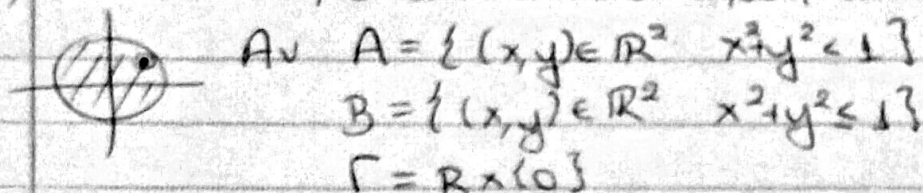 Αν A = {(x,y) ∈ ℝ² x²+y² < 1}
B = {(x,y) ∈ ℝ² x²+y² ≤ 1}
Γ = R × {0}